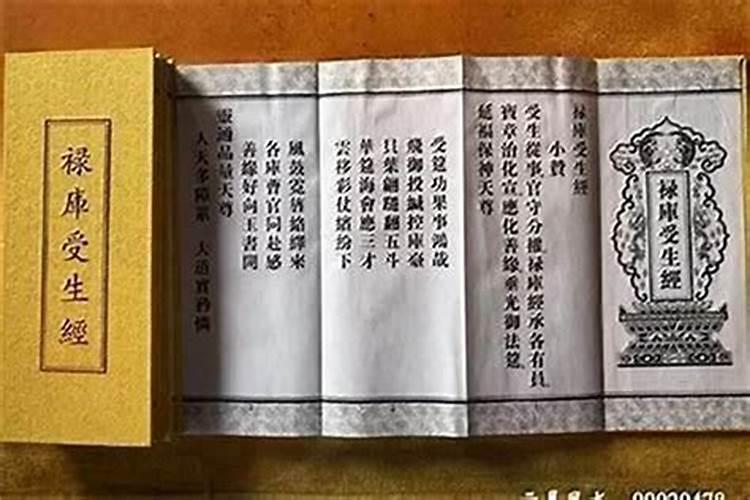 祿庫受生經
祿庫受生經
祿庫受生經
小贊
受生從事官守分權祿庫經承各有員
寶章治化宣應化善緣垂光御法筵
延福保神天尊
受筵功果事鴻哉
飛御投緘控庫臺
貝葉翩翻五斗
華筵海會應三才
雲移彩仗繽紛下
風鼓霓旌絡繹來
各庫曹官同赴感
善緣好向玉書開
靈通品量天尊
人天多障業 大道實矜憐
90020478